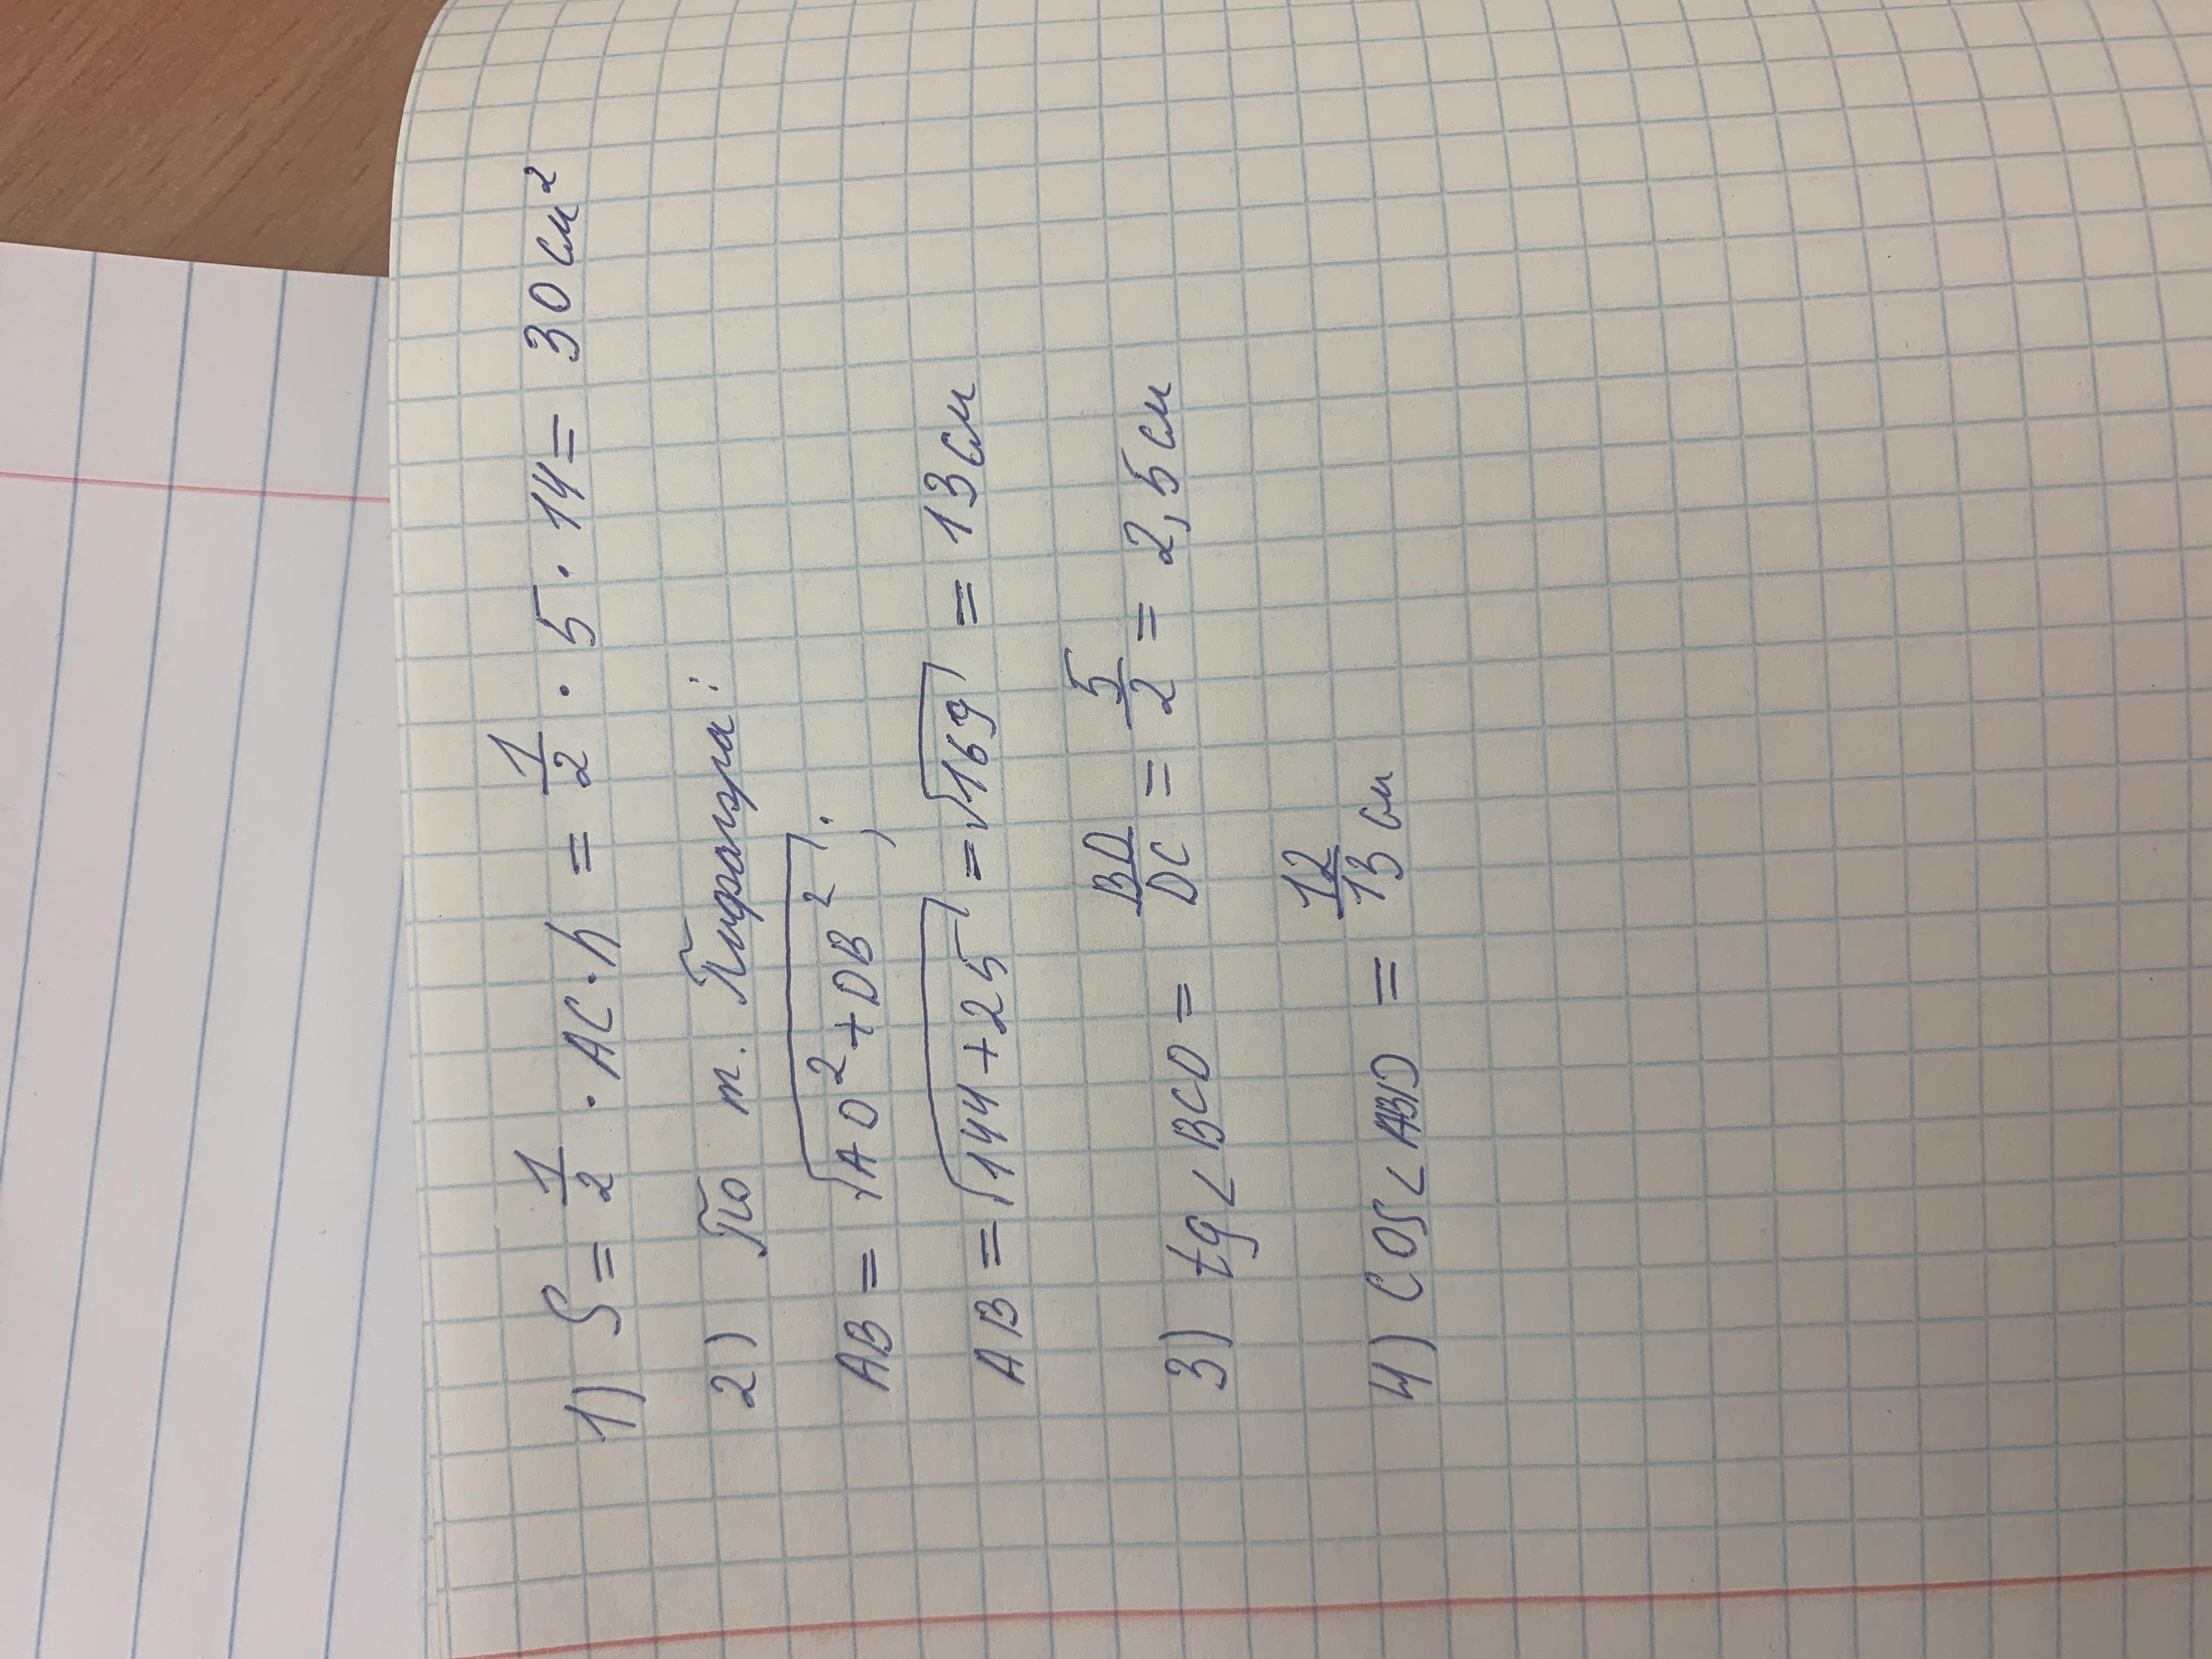 1) S = 1/2 · AC · h = 1/2 · 5 · 14 = 30 см²
2) По т. Пифагора:
AB = √AD² + DB²;
AB = √144 + 25 = √169 = 13 см
3) tg < BCD = BD/DC = 5/2 = 2,5 см
4) cos < ABD = 12/13 см